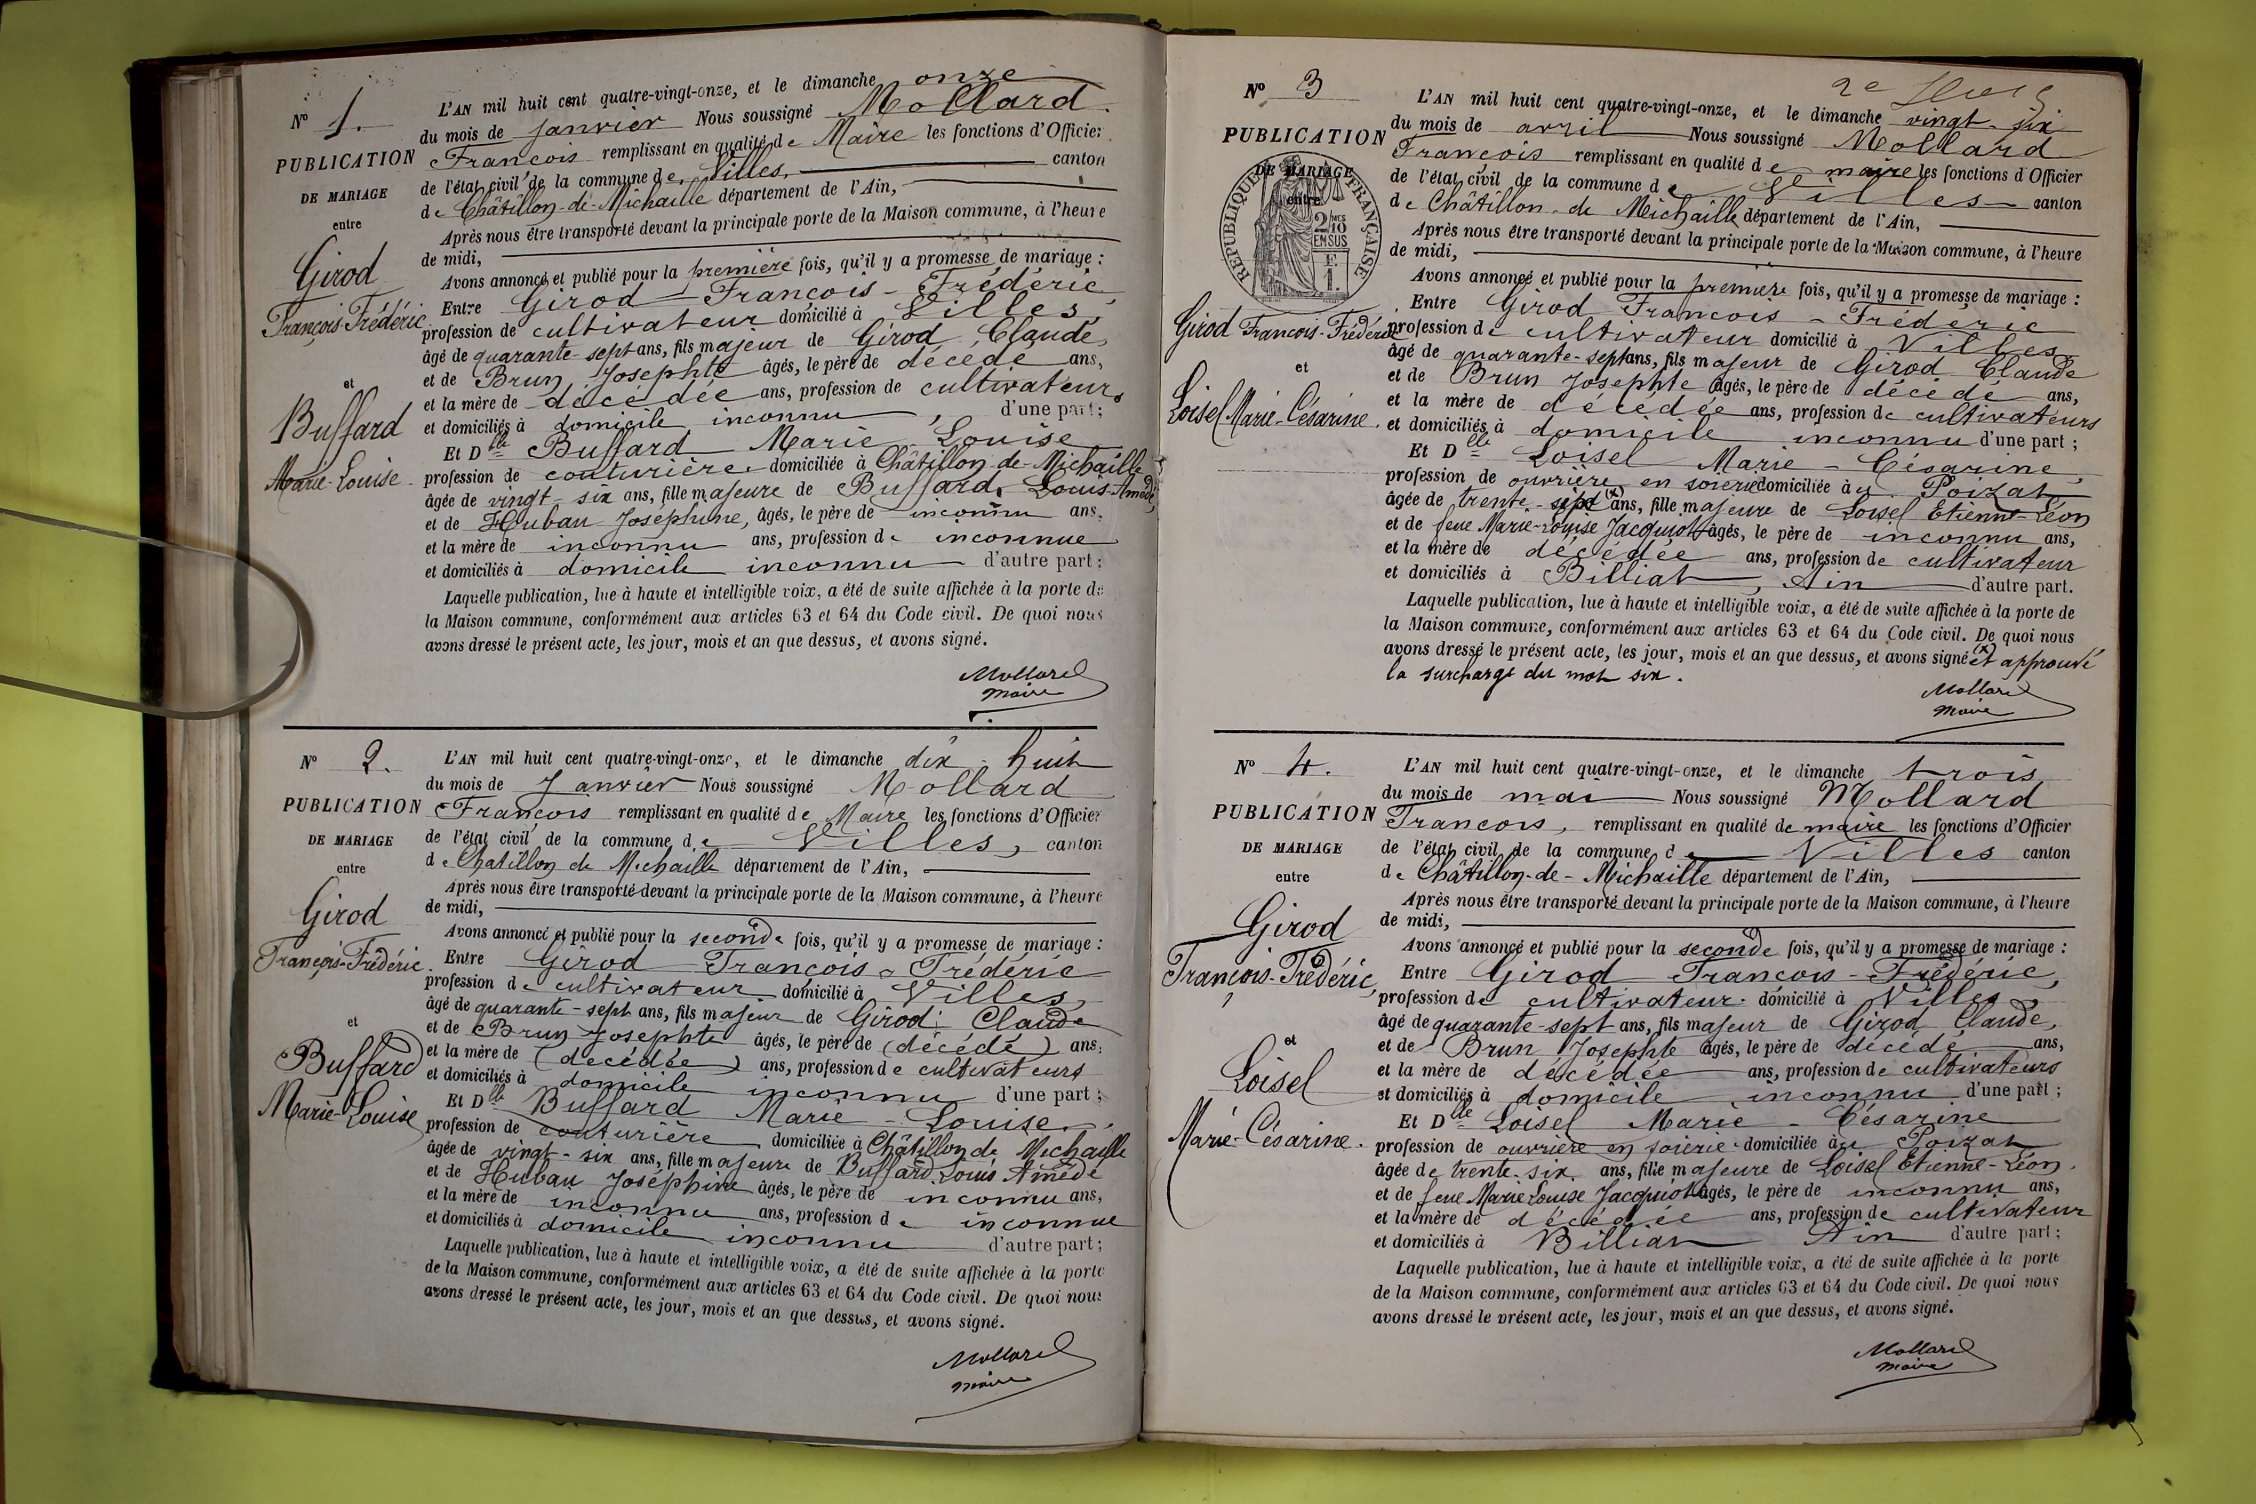 N° 1.
PUBLICATION
DE MARIAGE
entre
Girod
François-Frédéric
et
Buffard
Marie-Louise
L'AN mil huit cent quatre-vingt-onze, et le dimanche onze
du mois de janvier Nous soussigné Mollard
François remplissant en qualité de Maire les fonctions d'Officier
de l'état civil de la commune de Villes, canton
de Châtillon-de-Michaille département de l'Ain,
Après nous être transporté devant la principale porte de la Maison commune, à l'heure
de midi,
Avons annoncé et publié pour la première fois, qu'il y a promesse de mariage :
Entre Girod François-Frédéric,
profession de cultivateur domicilié à Villes,
âgé de quarante-sept ans, fils majeur de Girod, Claude,
et de Brun Josephte âgés, le père de décédé ans,
et la mère de décédée ans, profession de cultivateurs
et domiciliés à domicile inconnu, d'une part ;
Et Dlle Buffard Marie-Louise
profession de couturière domiciliée à Châtillon-de-Michaille
âgée de vingt-six ans, fille majeure de Buffard, Louis-Amédé,
et de Hubau Joséphine, âgés, le père de inconnu ans,
et la mère de inconnu ans, profession de inconnue
et domiciliés à domicile inconnu d'autre part ;
Laquelle publication, lue à haute et intelligible voix, a été de suite affichée à la porte de
la Maison commune, conformément aux articles 63 et 64 du Code civil. De quoi nous
avons dressé le présent acte, les jour, mois et an que dessus, et avons signé.
Mollard
maire
N° 2.
PUBLICATION
DE MARIAGE
entre
Girod
François-Frédéric.
et
Buffard
Marie-Louise
L'AN mil huit cent quatre-vingt-onze, et le dimanche dix-huit
du mois de Janvier Nous soussigné Mollard
François remplissant en qualité de Maire les fonctions d'Officier
de l'état civil de la commune de Villes, canton
de Chatillon de Michaille département de l'Ain,
Après nous être transporté devant la principale porte de la Maison commune, à l'heure
de midi,
Avons annoncé et publié pour la seconde fois, qu'il y a promesse de mariage :
Entre Girod François-Frédéric
profession de cultivateur domicilié à Villes,
âgé de quarante-sept ans, fils majeur de Girod Claude
et de Brun Josephte âgés, le père de (décédé) ans,
et la mère de (décédée) ans, profession de cultivateurs
et domiciliés à domicile inconnu d'une part ;
Et Dlle Buffard Marie-Louise,
profession de couturière domiciliée à Châtillon de Michaille
âgée de vingt-six ans, fille majeure de Buffard Louis Amédé
et de Hubau Joséphine âgés, le père de inconnu ans,
et la mère de inconnu ans, profession de inconnue
et domiciliés à domicile inconnu d'autre part ;
Laquelle publication, lue à haute et intelligible voix, a été de suite affichée à la porte
de la Maison commune, conformément aux articles 63 et 64 du Code civil. De quoi nous
avons dressé le présent acte, les jour, mois et an que dessus, et avons signé.
Mollard
maire
2e
N° 3
PUBLICATION
DE MARIAGE
entre
RÉPUBLIQUE FRANÇAISE
2/10 MES
EN SUS
F.
1.
Girod François-Frédéric
et
Loisel Marie-Césarine.
L'AN mil huit cent quatre-vingt-onze, et le dimanche vingt-six
du mois de avril Nous soussigné Mollard
François remplissant en qualité de maire les fonctions d'Officier
de l'état civil de la commune de Villes canton
de Châtillon-de Michaille département de l'Ain,
Après nous être transporté devant la principale porte de la Maison commune, à l'heure
de midi,
Avons annoncé et publié pour la première fois, qu'il y a promesse de mariage :
Entre Girod François-Frédéric
profession de cultivateur domicilié à Villes,
âgé de quarante-sept ans, fils majeur de Girod Claude
et de Brun Josephte âgés, le père de décédé ans,
et la mère de décédée ans, profession de cultivateurs
et domiciliés à domicile inconnu d'une part ;
Et Dlle Loisel Marie-Césarine,
profession de ouvrière en soierie domiciliée au Poizat
âgée de trente-six (x) ans, fille majeure de Loisel Etienne-Léon
et de feue Marie-Louise Jacquiot âgés, le père de inconnu ans,
et la mère de décédée ans, profession de cultivateur
et domiciliés à Billiat, Ain d'autre part.
Laquelle publication, lue à haute et intelligible voix, a été de suite affichée à la porte de
la Maison commune, conformément aux articles 63 et 64 du Code civil. De quoi nous
avons dressé le présent acte, les jour, mois et an que dessus, et avons signé (x) et approuvé
la surcharge du mot six.
Mollard
Maire
N° 4.
PUBLICATION
DE MARIAGE
entre
Girod
François-Frédéric,
et
Loisel
Marie-Césarine.
L'AN mil huit cent quatre-vingt-onze, et le dimanche trois
du mois de mai Nous soussigné Mollard
François, remplissant en qualité de maire les fonctions d'Officier
de l'état civil de la commune de Villes canton
de Châtillon-de-Michaille département de l'Ain,
Après nous être transporté devant la principale porte de la Maison commune, à l'heure
de midi,
Avons annoncé et publié pour la seconde fois, qu'il y a promesse de mariage :
Entre Girod François-Frédéric,
profession de cultivateur domicilié à Villes,
âgé de quarante-sept ans, fils majeur de Girod Claude,
et de Brun Josephte âgés, le père de décédé ans,
et la mère de décédée ans, profession de cultivateurs
et domiciliés à domicile inconnu d'une part ;
Et Dlle Loisel Marie-Césarine
profession de ouvrière en soierie domiciliée au Poizat
âgée de trente-six ans, fille majeure de Loisel Etienne-Léon.
et de feue Marie Louise Jacquiot âgés, le père de inconnu ans,
et la mère de décédée ans, profession de cultivateur
et domiciliés à Billiat Ain d'autre part ;
Laquelle publication, lue à haute et intelligible voix, a été de suite affichée à la porte
de la Maison commune, conformément aux articles 63 et 64 du Code civil. De quoi nous
avons dressé le présent acte, les jour, mois et an que dessus, et avons signé.
Mollard
maire